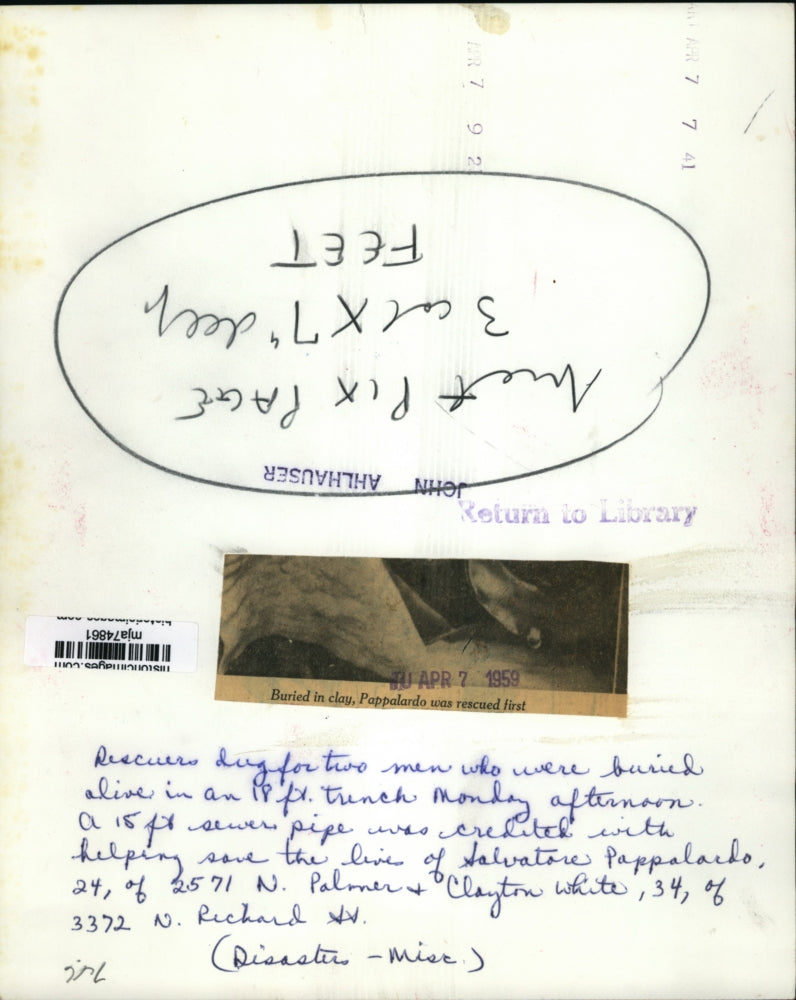 APR 7 9 2
APR 7 7 41
Met PIX PAGE
3 col X 7" deep
FEET
JOHN AHLHAUSER
Return to Library
historicimages.com
mja74861
historicimages.com
JU APR 7 1959
Buried in clay, Pappalardo was rescued first
Rescuers dug for two men who were buried
alive in an 18 ft. trench Monday afternoon.
A 15 ft sewer pipe was credited with
helping save the lives of Salvatore Pappalardo,
24, of 2571 N. Palmer & Clayton White, 34, of
3372 N. Richard St.
(Disasters - Misc.)